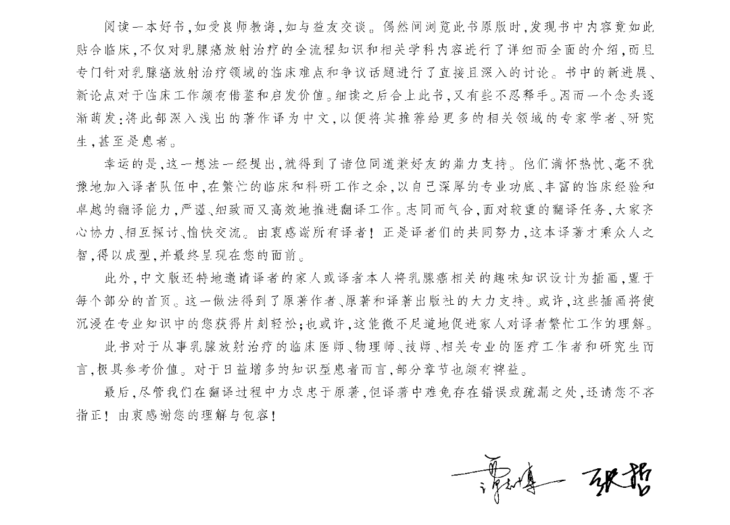 阅读一本好书,如受良师教诲,如与益友交谈。偶然间浏览此书原版时,发现书中内容竟如此
贴合临床,不仅对乳腺癌放射治疗的全流程知识和相关学科内容进行了详细而全面的介绍,而且
专门针对乳腺癌放射治疗领域的临床难点和争议话题进行了直接且深入的讨论。书中的新进展、
新论点对于临床工作颇有借鉴和启发价值。细读之后合上此书,又有些不忍释手。因而一个念头逐
渐萌发:将此部深入浅出的著作译为中文,以便将其推荐给更多的相关领域的专家学者、研究
生,甚至是患者。
幸运的是,这一想法一经提出,就得到了诸位同道兼好友的鼎力支持。他们满怀热忱、毫不犹
豫地加入译者队伍中,在繁忙的临床和科研工作之余,以自己深厚的专业功底、丰富的临床经验和
卓越的翻译能力,严谨、细致而又高效地推进翻译工作。志同而气合,面对较重的翻译任务,大家齐
心协力、相互探讨、愉快交流。由衷感谢所有译者!正是译者们的共同努力,这本译著才乘众人之
智,得以成型,并最终呈现在您的面前。
此外,中文版还特地邀请译者的家人或译者本人将乳腺癌相关的趣味知识设计为插画,置于
每个部分的首页。这一做法得到了原著作者、原著和译著出版社的大力支持。或许,这些插画将使
沉浸在专业知识中的您获得片刻轻松;也或许,这能微不足道地促进家人对译者繁忙工作的理解。
此书对于从事乳腺放射治疗的临床医师、物理师、技师、相关专业的医疗工作者和研究生而
言,极具参考价值。对于日益增多的知识型患者而言,部分章节也颇有裨益。
最后,尽管我们在翻译过程中力求忠于原著,但译著中难免存在错误或疏漏之处,还请您不吝
指正!由衷感谢您的理解与包容!
张哲